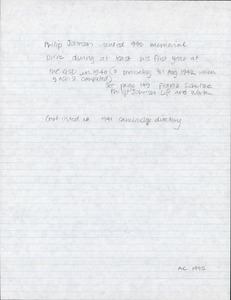 Philip Johnson rented 990 Memorial
Drive during at least his first year at
the GSD in 1940 (? probably til Aug 1942 when
9 Ash St. completed)
See page 149 Franz Schulze
Philip Johnson Life and Work
(not listed in 1941 Cambridge directory
AC 1992